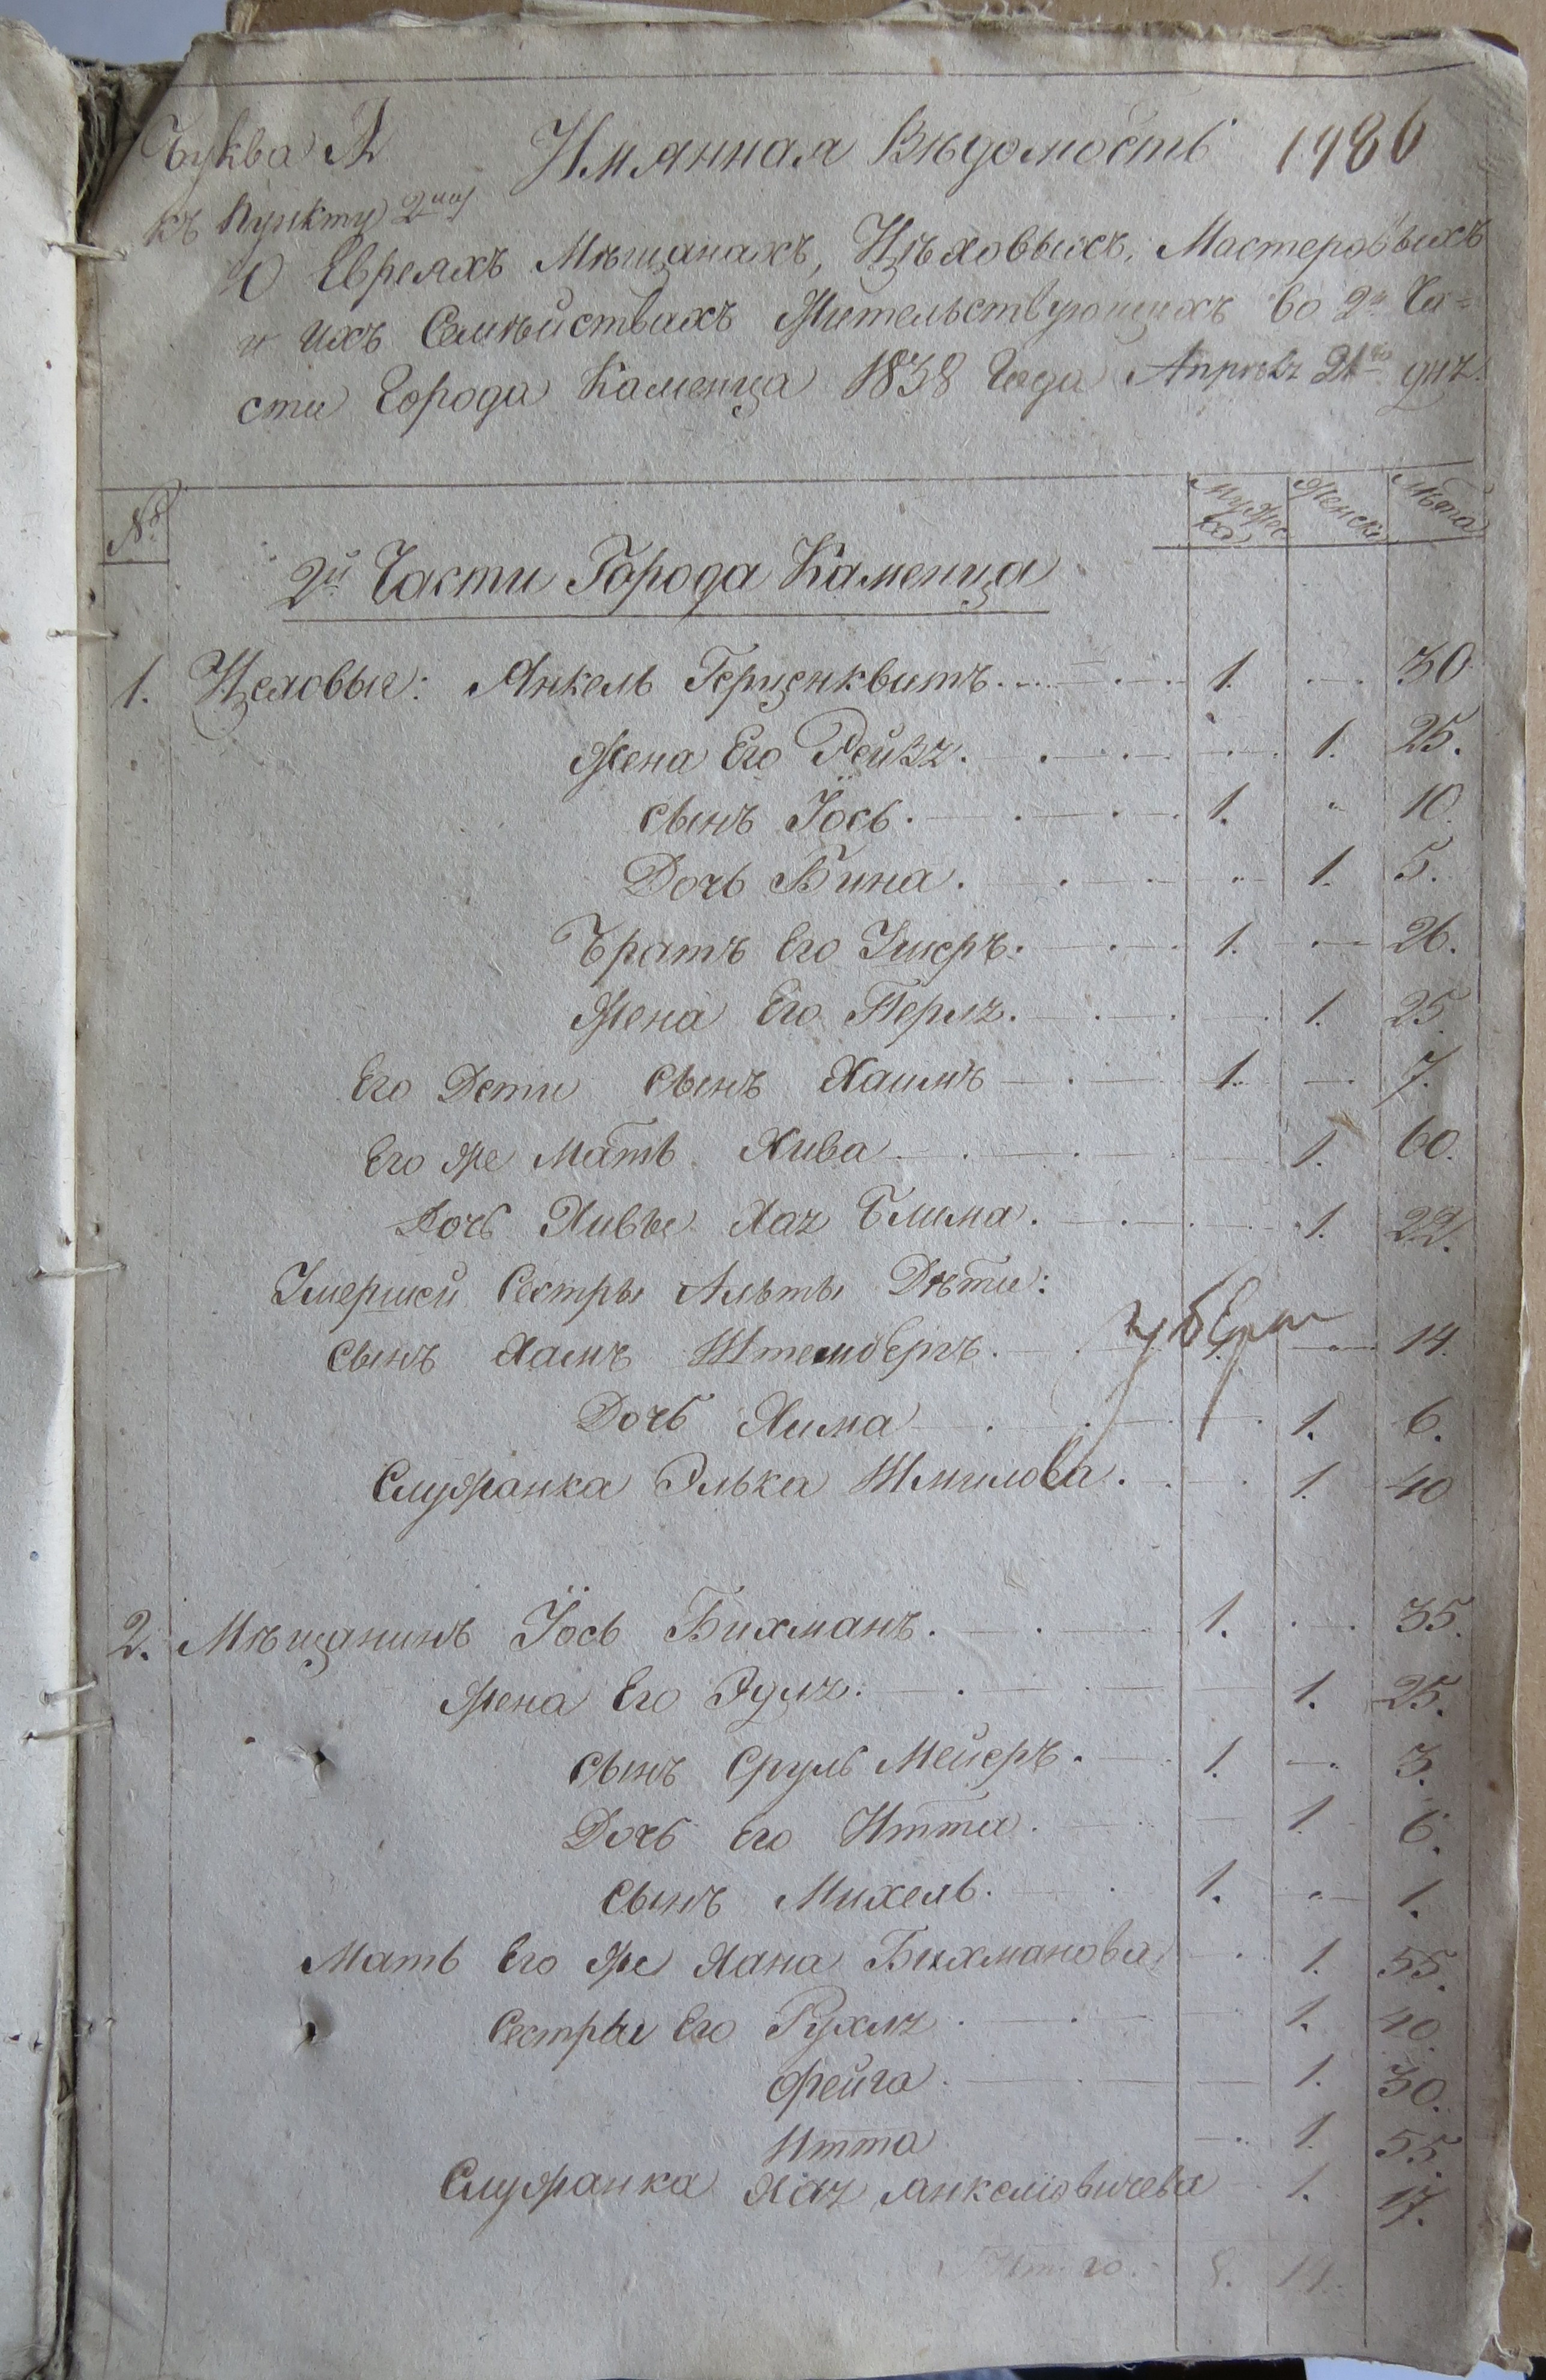 Буква А Имянная Вѣдомость 1986
къ Пункту 2му
О Евреяхъ Мѣщанахъ, Цѣховыхъ, Мастеровыхъ
и ихъ Семѣйствахъ Жительствующихъ во 2й Ча=
сти Города Каменца 1838 Года Апрѣля 21го дня.
№ Мужес ка Женск Лѣта
2й Части Города Каменца
1. Цеховые: Янкель Герценквитъ. 1. 30
Жена Его Рейзя. 1. 25.
сынъ Іось. 1. 10.
Дочь Бина. 1. 5.
Братъ Его Умеръ. 1. 26.
Жена Его Перля. 1. 25.
Его Дети сынъ Хаимъ 1. 7.
Его же Мать Хива 1. 60.
Дочь Хивы Хая Блима. 1. 22.
Умершей Сестры Альты Дѣти:
сынъ Хаимъ Штемберъ. 14.
Дочь Хима 1. 6.
Служанка Элька Шмилова. 1. 40
2. Мѣщанинъ Іось Бихманъ. 1. 35.
Жена Его Эдля. 1. 25.
сынъ Сруль Мейеръ. 1. 3.
Дочь Его Итта. 1. 6.
сынъ Михель. 1. 1.
Мать Его же Хана Бихманова 1. 55.
Сестры Его Рухля. 1. 40.
Фейга. 1. 30.
Итта 1. 55.
Служанка Хая Янкелiовичева 1. 17.
Итого. 8.